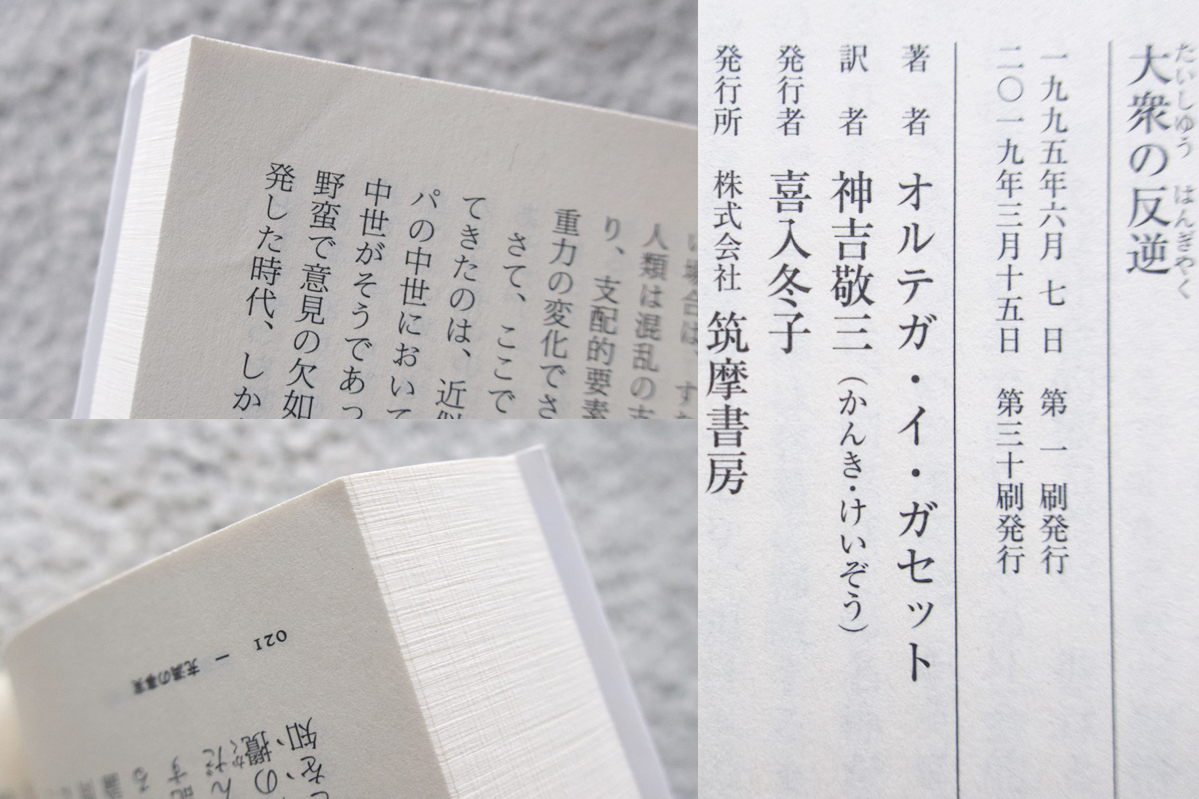 い場合は、す
人類は混乱の
り、支配的要素
重力の変化でさ
さて、ここで
てきたのは、近似
パの中世において
中世がそうであっ
野蛮で意見の欠如
発した時代、しか
021 一 充満の事実
知
、攪
を、の
大衆の反逆
たいしゅう はんぎゃく
一九九五年六月 七 日 第 一 刷発行
二〇一九年三月十五日 第三十刷発行
著 者 オルテガ・イ・ガセット
訳 者 神吉敬三（かんき・けいぞう）
発行者 喜入冬子
発行所 株式会社 筑摩書房